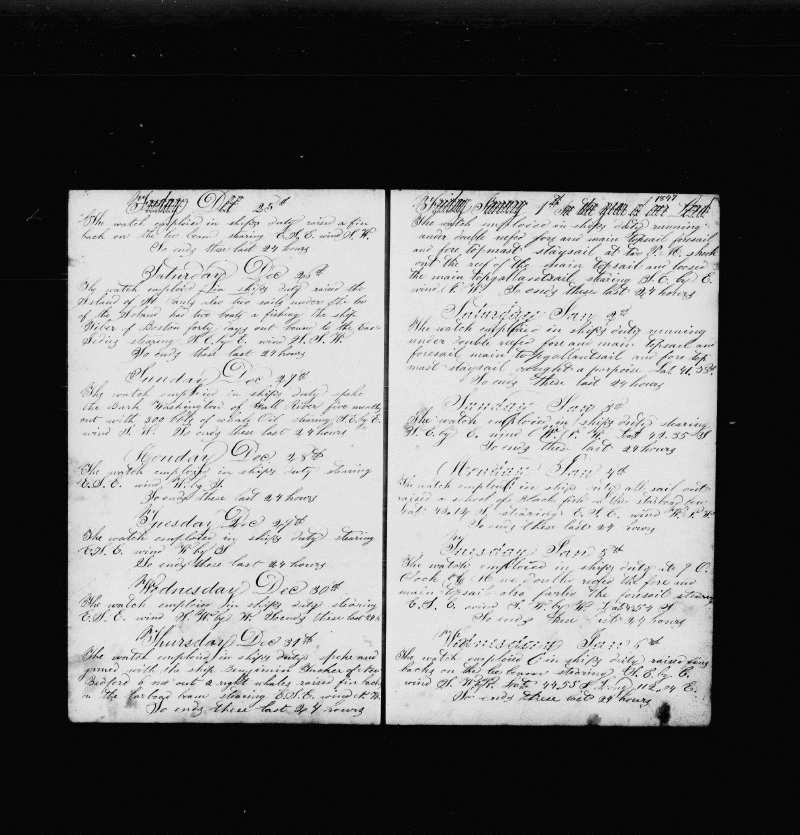 Friday Dec 25th
The watch employed in ships duty raised a fin
back on the lee beam stearing E.S.E. wind S.W.
So ends these last 24 hours
Saturday Dec 26th
The watch employed in ships duty raised the
Island of St. Pauls also two sails under the lee
of the Island had two boats a fishing the ship
of Boston forty days out bound to the East
Indies stearing S.E. by E. wind
So ends these last 24 hours
Sunday Dec 27th
The watch employed in ships duty spoke
the Bark Washington of Fall River five months
out with 300 bbls of whale Oil stearing S.E. by E.
wind So ends these last 24 hours
Monday Dec 28th
The watch employed in ships duty stearing
E.S.E. wind W. by S.
So ends these last 24 hours
Tuesday Dec 29th
The watch employed in ships duty stearing
E.S.E. wind W by S
So ends these last 24 hours
Wednesday Dec 30th
The watch employed in ships duty stearing
E.S.E. wind So ends these last 24 h
Thursday Dec 31th
The watch employed in ships duty spoke and
gamed with the ship Benjamin Tucker of New
Bedford 6 mo out 2 right whales raised fin backs
on the larboad beam stearing E.S.E. wind
So ends these last 24 hours
Friday January 1st in the year of our Lord 1847
The watch employed in ships duty running
under double reefed fore and main topsail foresail
and fore topmast staysail at two P.M. shook
out the reef of the main topsail and loosed
the main topgallantsail stearing S.E. by E.
wind So ends these last 24 hours
Saturday Jan 2nd
The watch employed in ships duty running
under double reefed fore and main topsail and
foresail main topgallantsail and fore top
mast staysail caught a porpoise Lat 41.38
So ends these last 24 hours
Sunday Jan 3rd
The watch employed in ships duty stearing
E. by E. wind Lat 42.35 S
So ends these last 24 hours
Monday Jan 4th
The watch employed in ships duty all sail out
raised a school of Black fish on the starboad bow
Lat 43.14 S stearing E.S.E. wind
So ends these last 24 hours
Tuesday Jan 5th
The watch employed in ships duty at O.
Clock P.M. we double reefed the fore and
main topsail also furled the foresail stearing
E.S.E. wind S.W. by W. Lat
So ends these last 24 hours
Wednesday Jan 6th
The watch employed in ships duty raised fin
backs on the lee beam stearing E. by E.
wind Lat 44.55 S Long 112.04 E.
So ends these last 24 hours